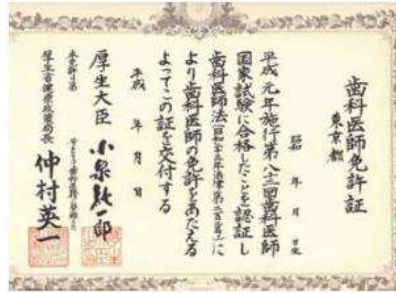 歯科医師免許証
東京都
昭和 年 月 日生
平成元年施行第八十三回歯科医師
国家試験に合格したことを認証し
歯科医師法(昭和二十三年法律第二百二号)に
より歯科医師の免許をあたえる
よってこの証を交付する
平成 年 月 日
厚生大臣 小泉純一郎
厚生省健康政策局長 仲村英一